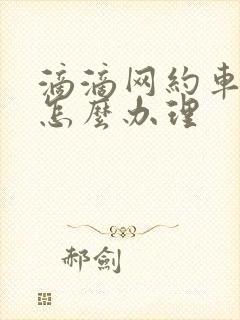 滴滴网約車
怎麼办理
郝劍